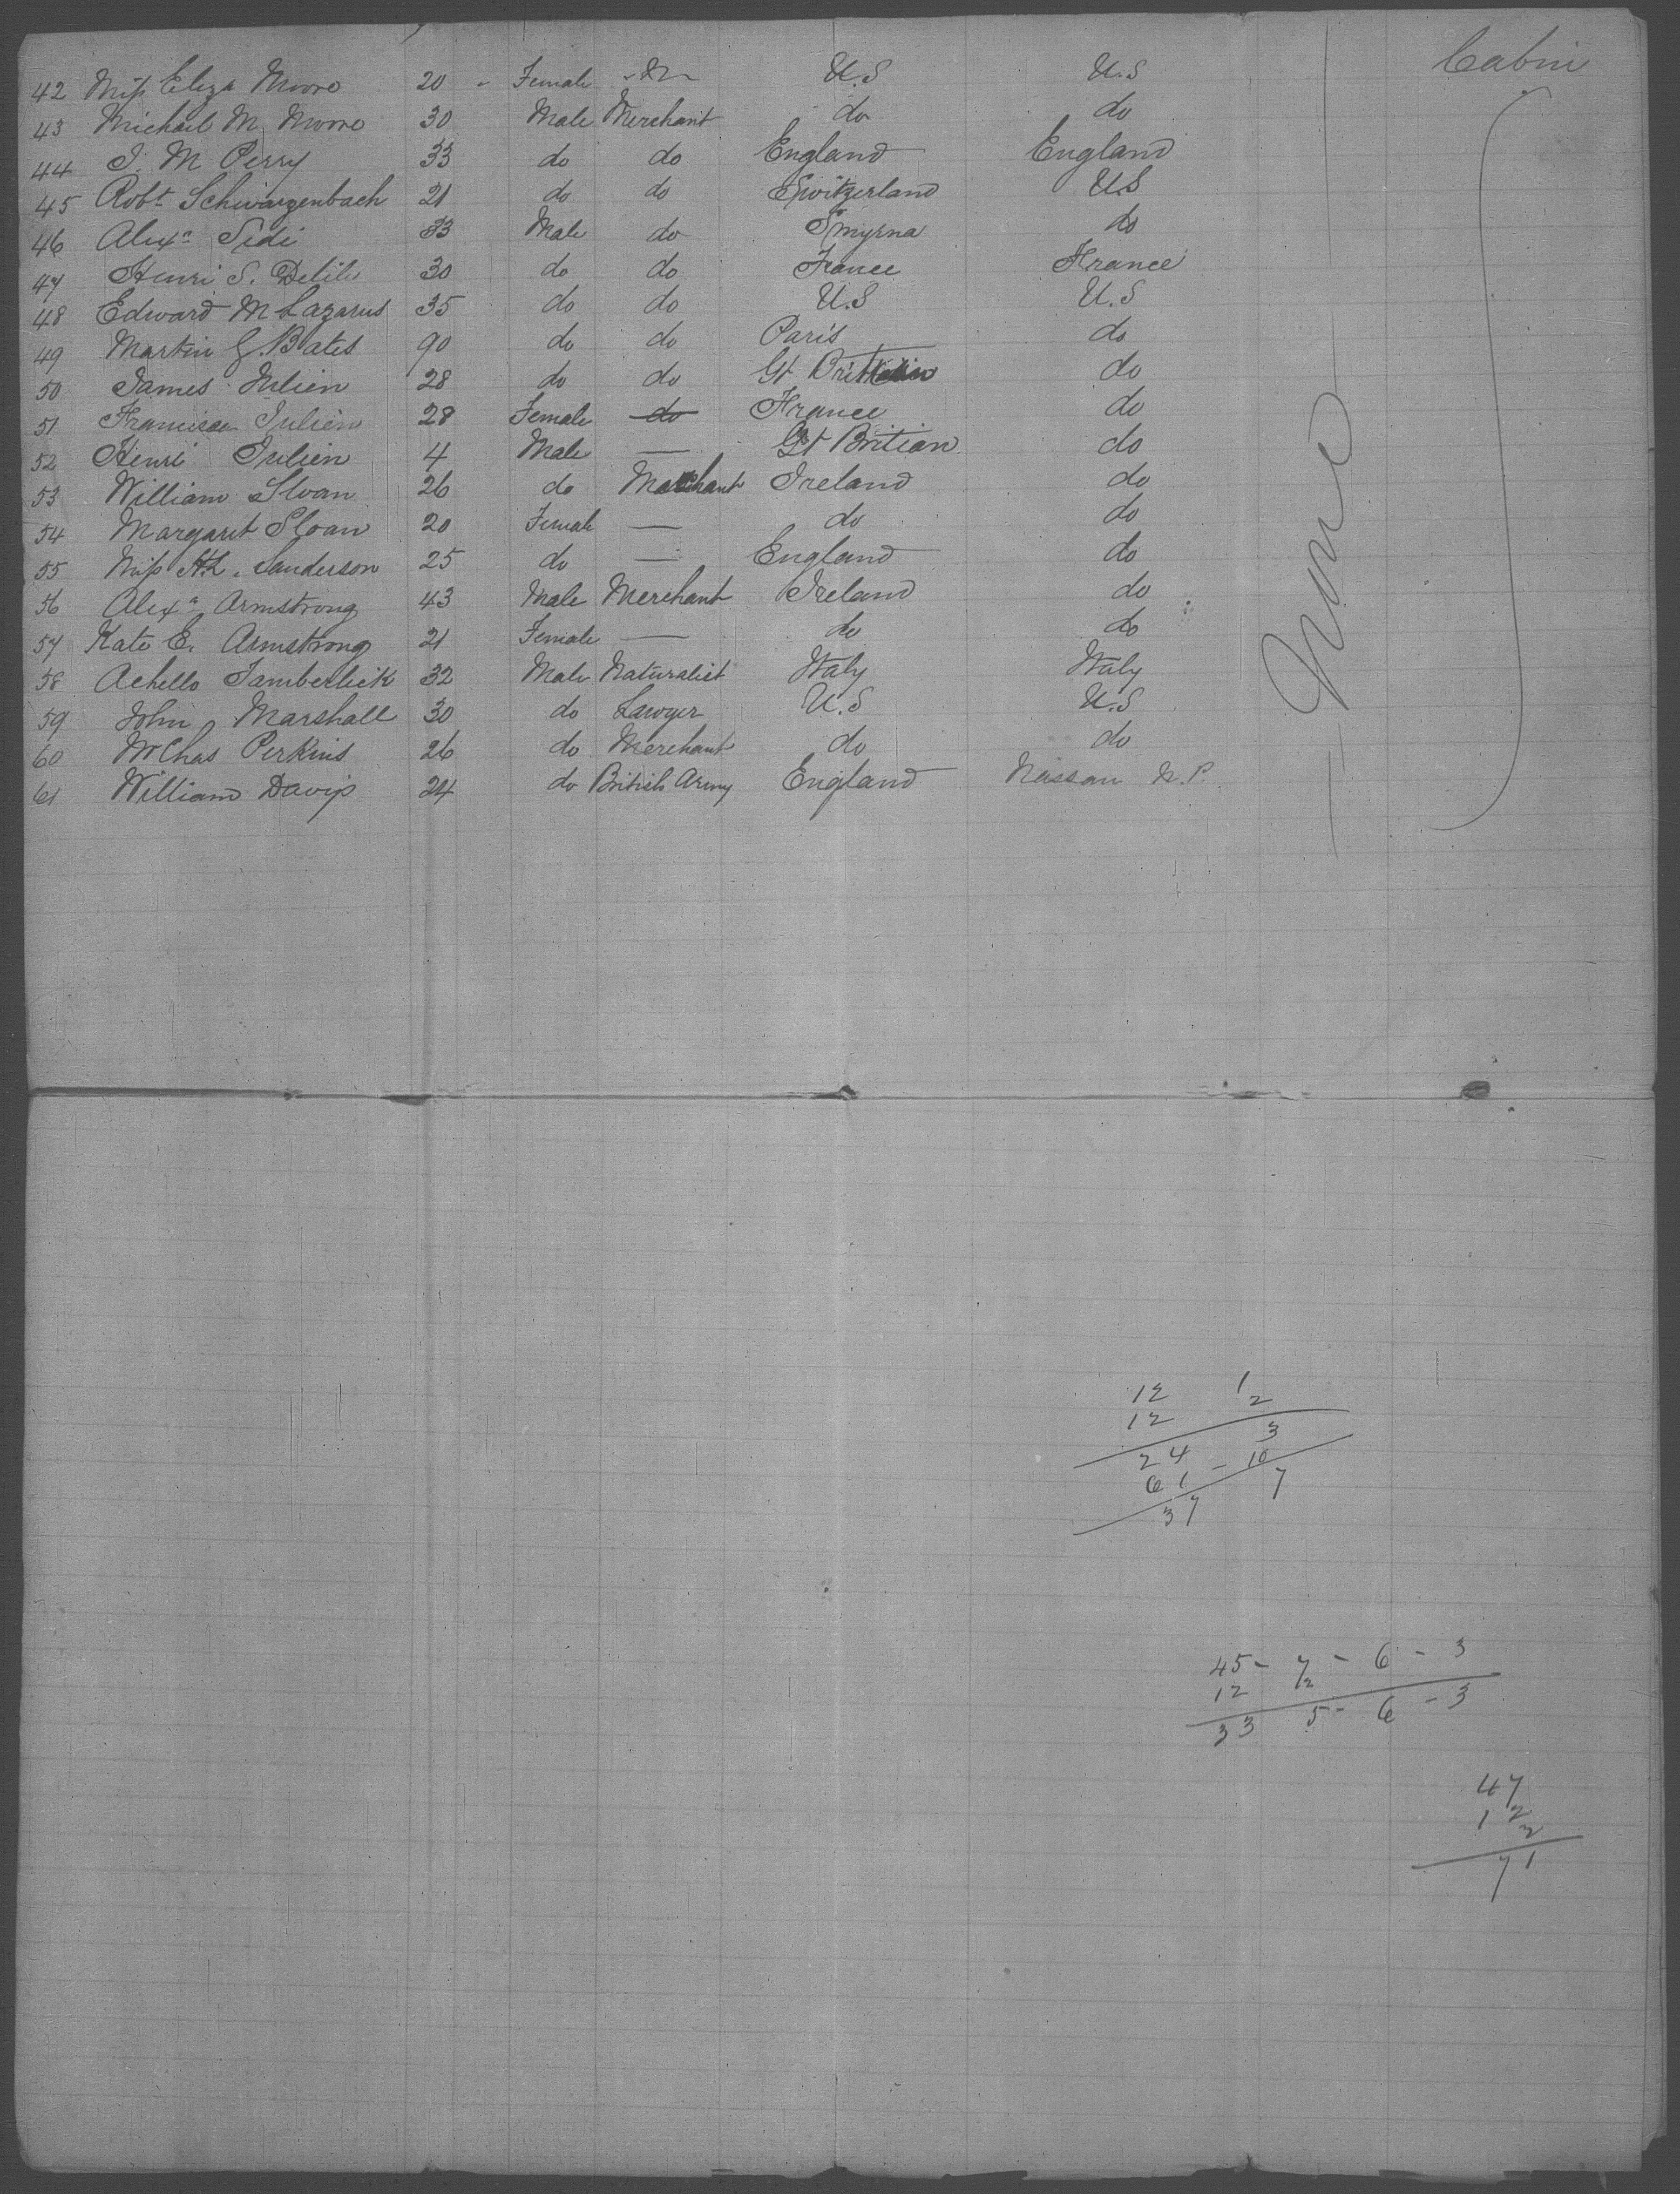 Cabin
42 Miss Eliza Moore 20 - Female U.S U.S
43 Michael M. Moore 30 Male Merchant do do
44 J. M Perry 33 do do England England
45 Robt Schwarzenbach 21 do do Switzerland U.S
46 Alexa Sidi 33 Male do Smyrna do
47 Henri S. Delile 30 do do France France
48 Edward M Lazarus 35 do do U.S U.S
49 Martin G. Bates 90 do do Paris do
50 James Julien 28 do do Gt Brittain do
51 Julien 28 Female do France do
52 Henri Julien 4 Male — Gt Britian do
53 William Sloan 26 do Merchant Ireland do
54 Margaret Sloan 20 Female — do do
55 Miss Sanderson 25 do — England do
56 Alexa Armstrong 43 Male Merchant Ireland do
57 Kate E. Armstrong 21 Female — do do
58 Achello Tamberlick 32 Male Naturalist Italy Italy
59 John Marshall 30 do Lawyer U.S U.S
60 Mr Chas Perkins 26 do Merchant do do
61 William Daviss 24 do British Army England Nassau N.P.
None
12 1
12 2
24 3
61 - 10
37 7
45 - 7 - 6 - 3
12 2
33 5 - 6 - 3
47
12
71